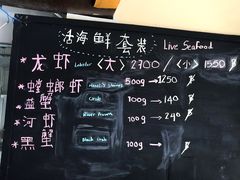 活海鮮套裝 Live Seafood
* 龙虾 Lobster <大> 2700 / <小> 1550 ฿
* 螳螂虾 Mantis Shrimp 500g → 1250 ฿
* 益蟹 Crab 100g → 140 ฿
* 河虾 River Prawn 100g → 240 ฿
* 黑蟹 Black Crab 100g → ฿